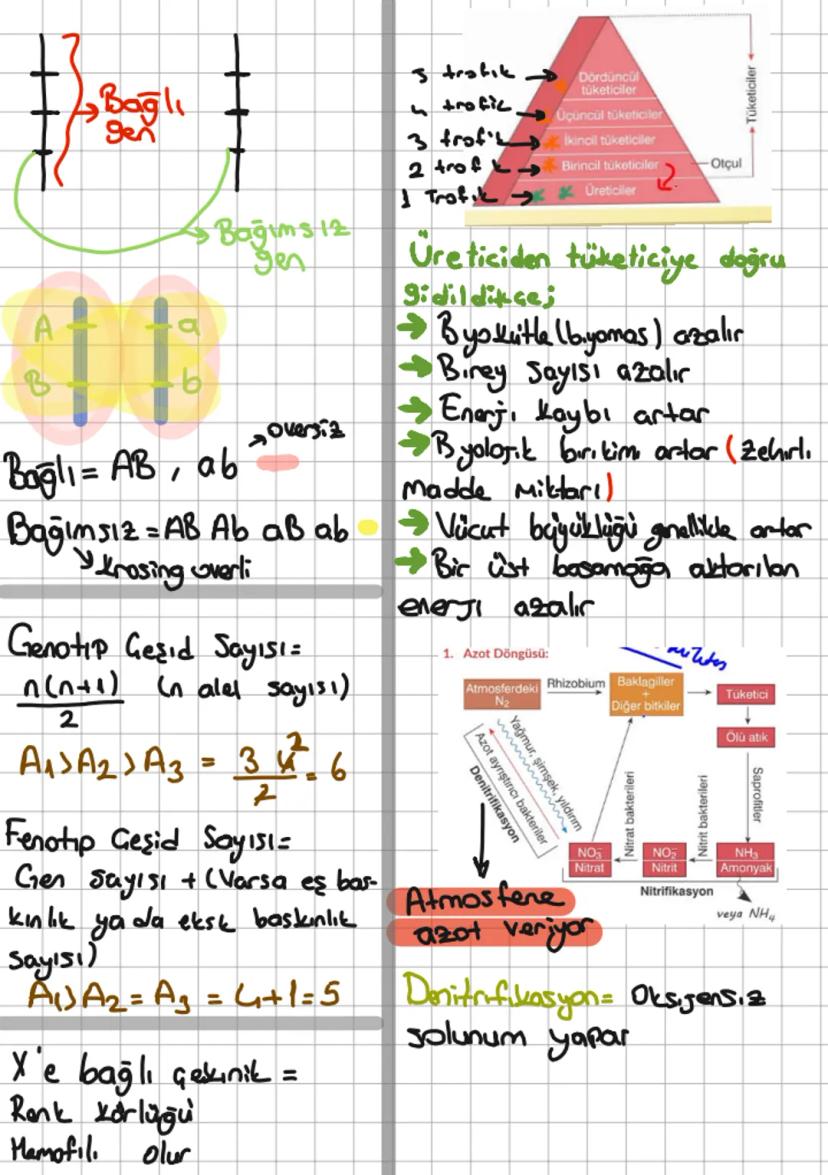 Bağlı
gen
Bağımsız
gen
A
a
B
b
oversiz
Bağlı = AB , ab
Bağımsız = AB Ab aB ab
krosing overli
Genotip Çeşid Sayısı=
n(n+1)
2
(n alel sayısı)
A1>A2>A3 = 3 4 2 / 2 = 6
Fenotip Çeşid Sayısı=
Gen sayısı + (Varsa eş bas-
kınlık ya da eksk baskınlık
sayısı)
A1>A2=A3 = 4+1=5
X'e bağlı çekinik =
Renk körlüğü
Hemofili olur
5 trofik
4 trofik
3 trofik
2 trofik
1 Trofik
Dördüncül
tüketiciler
Üçüncül tüketiciler
İkincil tüketiciler
Birincil tüketiciler
Üreticiler
Otçul
Tüketiciler
Üreticiden tüketiciye doğru
gidildikçe;
Byokütle (biyomas) azalır
Birey sayısı azalır
Enerji kaybı artar
Byolojik birikim artar (Zehirli
madde miktarı)
Vücut büyüklüğü genellikle artar
Bir üst basamağa aktarılan
enerji azalır
1. Azot Döngüsü:
Atmosferdeki
N2
Rhizobium
Baklagiller
+
Diğer bitkiler
Tüketici
Ölü atık
Saprofitler
NH3
Amonyak
veya NH4
Nitrit bakterileri
NO2-
Nitrit
Nitrat bakterileri
NO3-
Nitrat
Nitrifikasyon
Yağmur, şimşek, yıldırım
Azot ayrıştırıcı bakteriler
Denitrifikasyon
Atmosfere
azot veriyor
Denitrifikasyon= Oksijensiz
solunum yapar